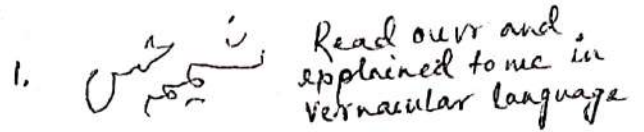 1.
Read ouvr and
epplained to me in
vernacular language